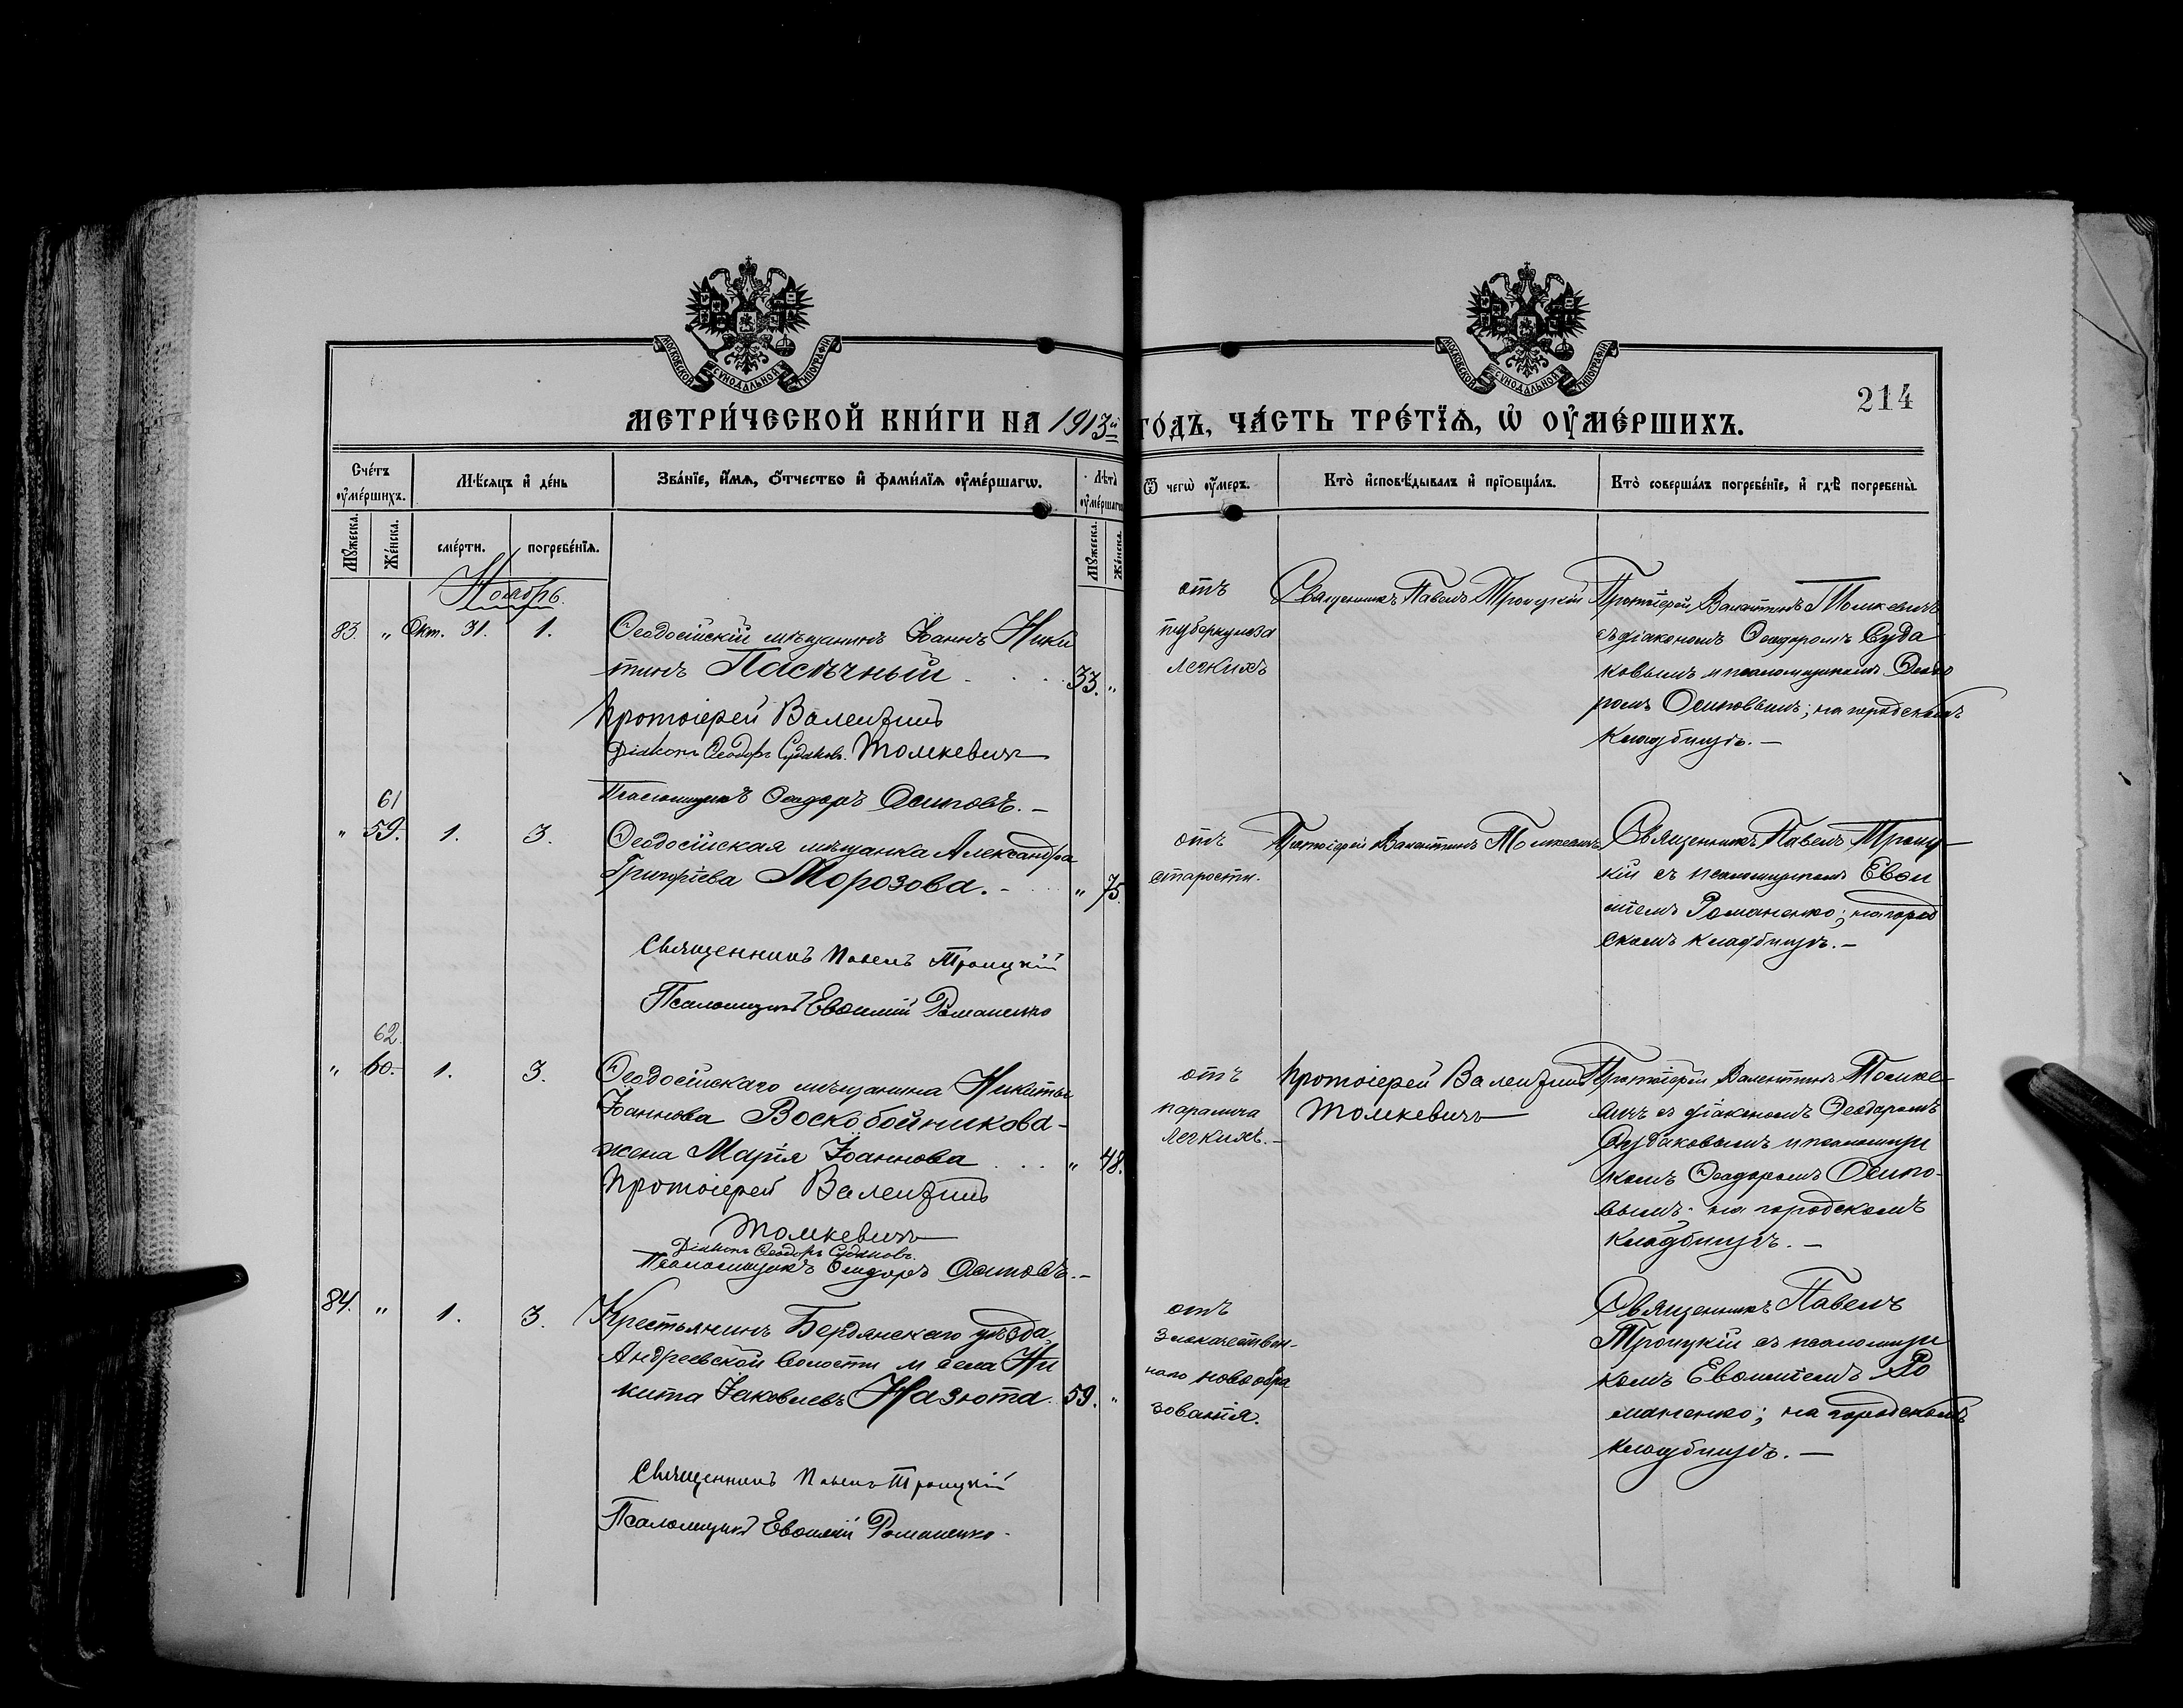 МОСКОВСКОЙ СѴНОДАЛЬНОЙ ТИПОГРАФІИ
МОСКОВСКОЙ СѴНОДАЛЬНОЙ ТИПОГРАФІИ
214
МЕТРИ́ЧЕСКОЙ КНИ́ГИ НА 1913й ГО́ДЪ, ЧА́СТЬ ТРЕ́ТЇѦ, Ѡ҆ ОУ҆МЕ́РШИХЪ.
Сче́тъ оу҆ме́ршихъ.
Мѣ́сяцъ и҆ де́нь
Зва́нїе, и҆́мѧ, ѻ҆́тчество и҆ фами́лїѧ оу҆ме́ршагѡ.
Лѣ́та оу҆ме́ршагѡ
Ѿ чегѡ̀ оу҆́меръ.
Кто̀ и҆сповѣ́дывалъ и҆ прїѡбща́лъ.
Кто̀ соверша́лъ погребе́нїе, и҆ гдѣ̀ погребены̀.
Мꙋ́жеска.
Же́нска.
сме́рти.
погребе́нїѧ.
Мꙋ́жеска.
Же́нска.
Ноябрь.
83. " Окт. 31. 1.
Ѳеодосійскій мѣщанинъ Іоаннъ Ники
тинъ Пасѣчный 33. "
Протоіерей Валентинъ
Діаконъ Ѳеодоръ Судаковъ. Томкевичъ
Псаломщикъ Ѳеодоръ Осиповъ. —
отъ
туберкулеза
легкихъ
Священникъ Павелъ Троицкій
Протоіерей Валентинъ Томкевичъ
съ діакономъ Ѳеодоромъ Суда
ковымъ и псаломщикомъ Ѳеодо
ромъ Осиповымъ; на городскомъ
кладбищѣ. —
61
" 59. 1. 3.
Ѳеодосійская мѣщанка Александра
Григоріева Морозова. — " 75.
Священникъ Павелъ Троицкій
Псаломщикъ Евѳимій Романенко
отъ
старости.
Протоіерей Валентинъ Томкевичъ
Священникъ Павелъ Троиц-
кій съ псаломщикомъ Евѳи
міемъ Романенко; на город
скомъ кладбищѣ. —
62
" 60. 1. 3.
Ѳеодосійскаго мѣщанина Никиты
Іоаннова Воскобойникова-
жена Марія Іоаннова " 48.
Протоіерей Валентинъ
Томкевичъ
Діаконъ Ѳеодоръ Судаковъ.
Псаломщикъ Ѳеодоръ Осиповъ. —
отъ
паралича
легкихъ. —
Протоіерей Валентинъ
Томкевичъ
Протоіерей Валентинъ Томке-
вичъ съ діакономъ Ѳеодоромъ
Судаковымъ и псаломщи
комъ Ѳеодоромъ Осипо-
вымъ; на городскомъ
кладбищѣ. —
84. " 1. 3.
Крестьянинъ Бердянскаго уѣзда,
Андреевской волости и села Ни
кита Іаковлевъ Назюта. 59. "
Священникъ Павелъ Троицкій
Псаломщикъ Евѳимій Романенко.
отъ
злокачествен-
наго новообра
зованія.
Священникъ Павелъ
Троицкій съ псаломщи
комъ Евѳиміемъ Ро
маненко; на городскомъ
кладбищѣ. —